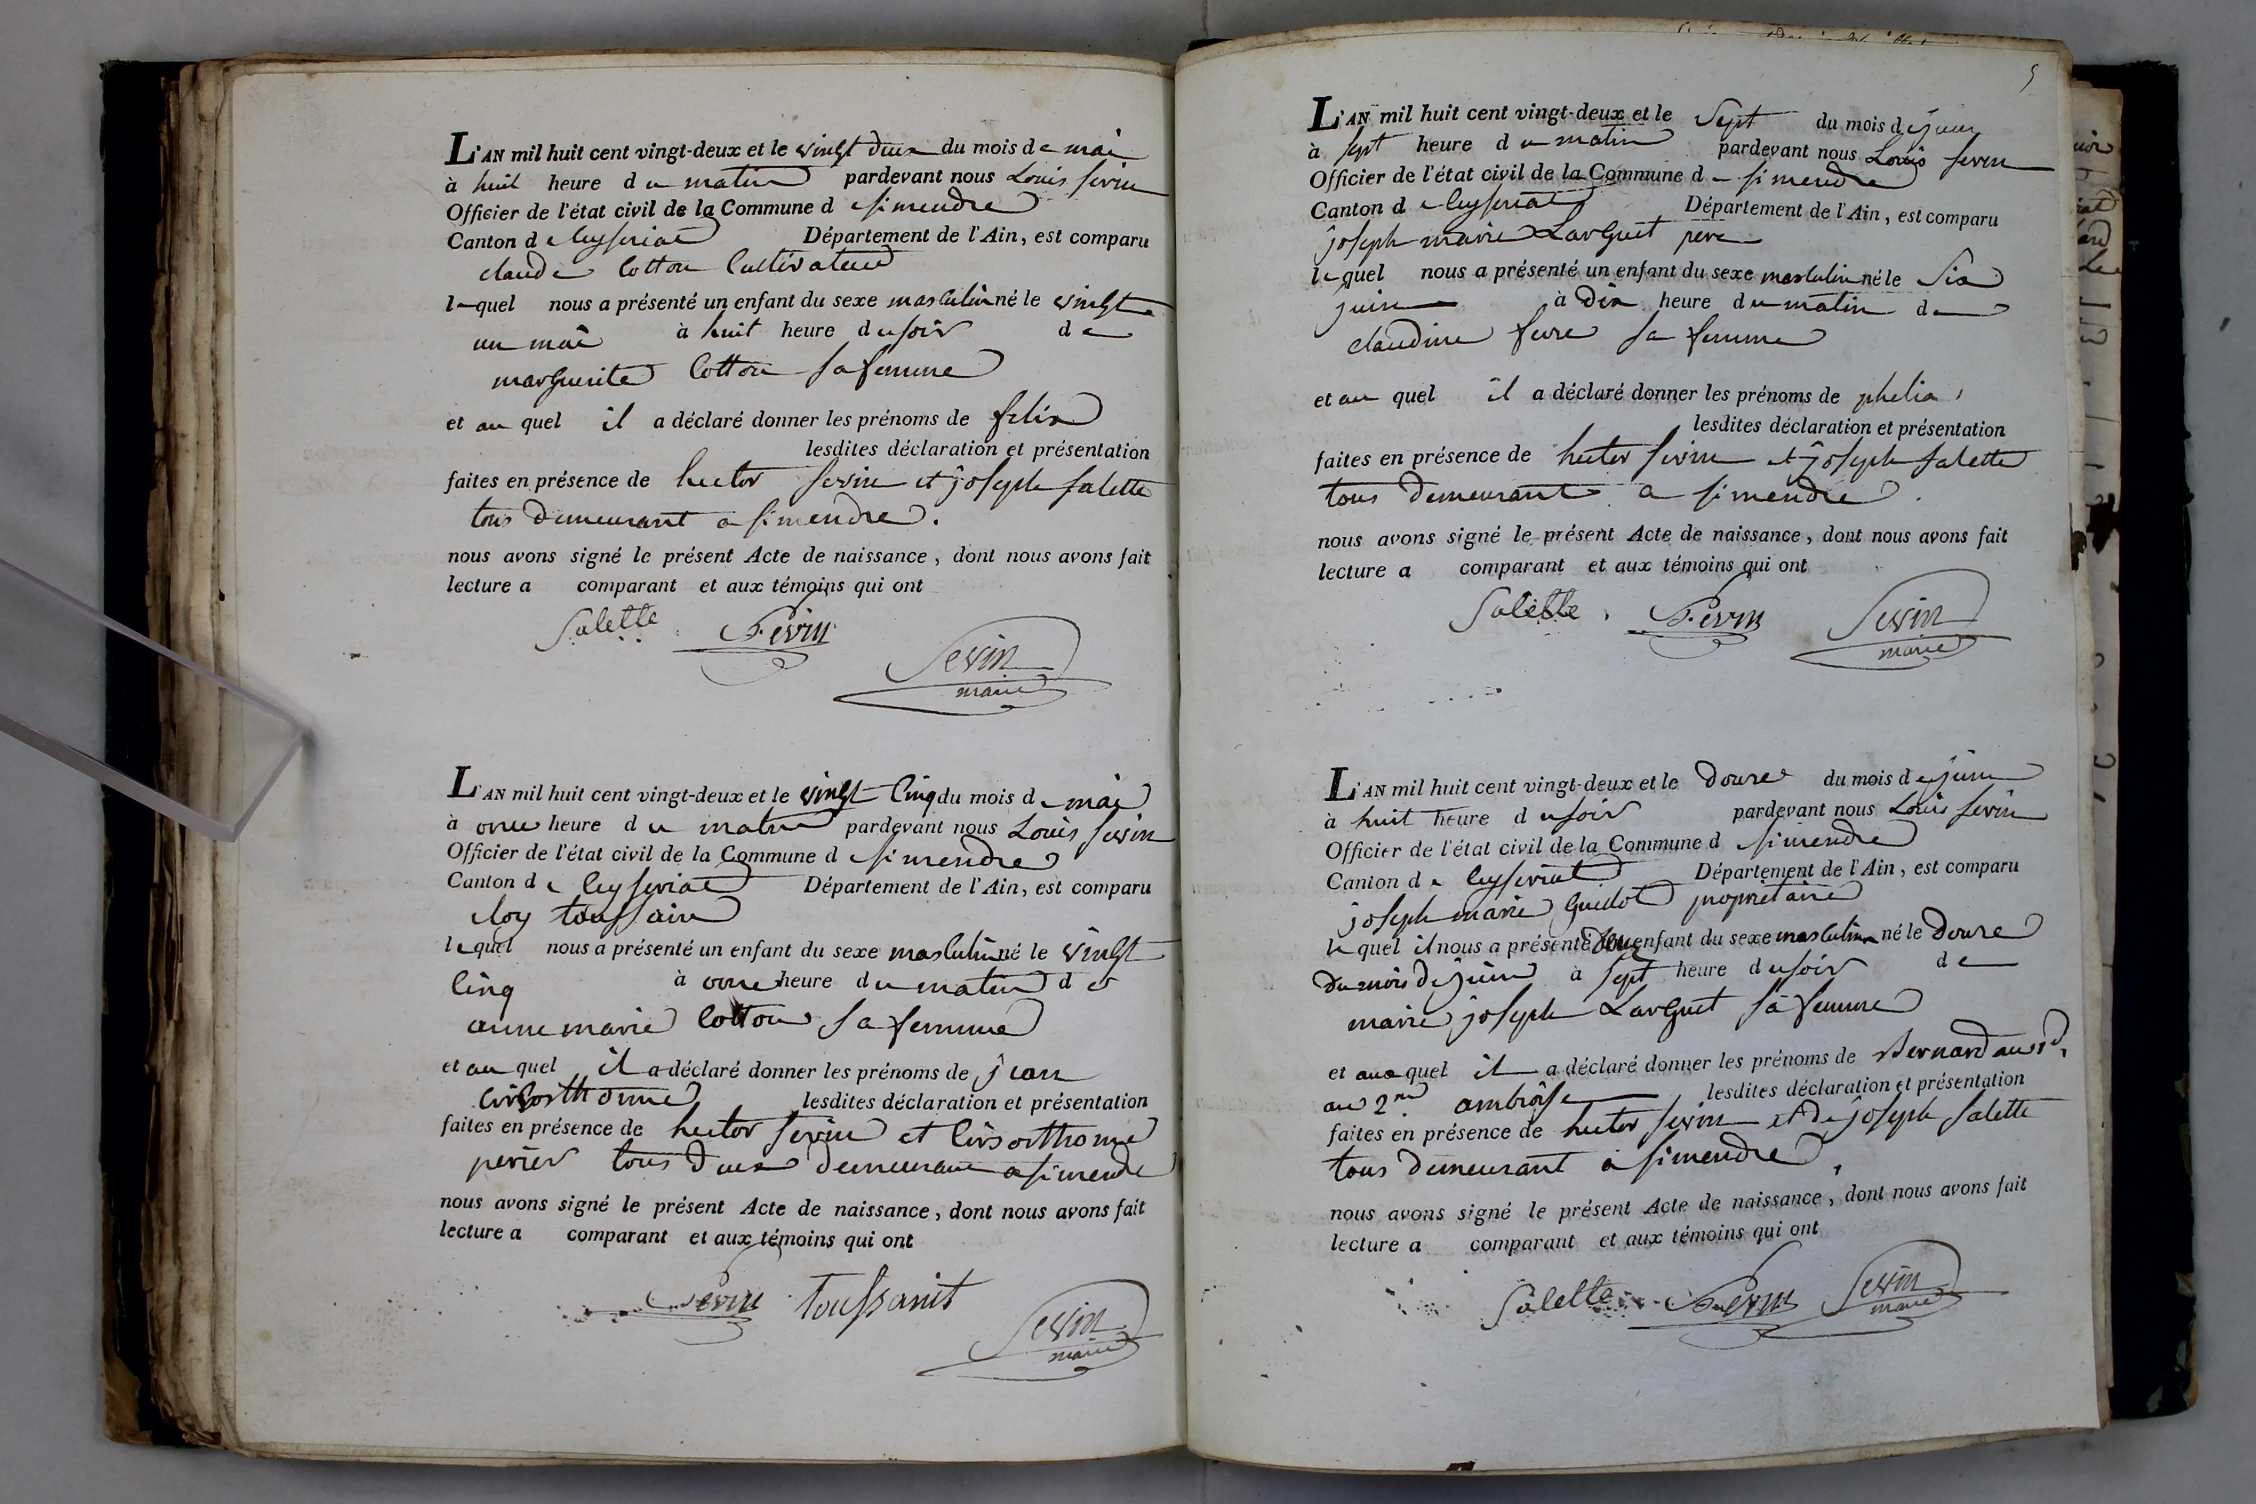 L'AN mil huit cent vingt-deux et le vingt deux du mois de mai
à huit heure du matin pardevant nous Louis sevin
Officier de l'état civil de la Commune d simendre
Canton de Ceyseriat Département de l'Ain, est comparu
claude Cotton Cultivateur
lequel nous a présenté un enfant du sexe masculin né le vingt
un mai à huit heure du soir de
marguerite Cotton sa femme
et au quel il a déclaré donner les prénoms de felix
lesdites déclaration et présentation
faites en présence de hector sevin et joseph salette
tous demeurant a simendre.
nous avons signé le présent Acte de naissance, dont nous avons fait
lecture a comparant et aux témoins qui ont
Salette Sevin
Sevin
maire
L'AN mil huit cent vingt-deux et le vingt Cinq du mois de mai
à onze heure du matin pardevant nous Louis sevin
Officier de l'état civil de la Commune d simendre
Canton de Ceyseriat Département de l'Ain, est comparu
cloy toussain
lequel nous a présenté un enfant du sexe masculin né le vingt
Cinq à onze heure du matin de
anne marie Cotton sa femme
et au quel il a déclaré donner les prénoms de jean
lesdites déclaration et présentation
faites en présence de hector sevin et Cirsosthome
perier tous deux demeurant a simendre
nous avons signé le présent Acte de naissance, dont nous avons fait
lecture a comparant et aux témoins qui ont
Sevin toussanit
Sevin
maire
5
L'AN mil huit cent vingt-deux et le sept du mois de juin
à sept heure du matin pardevant nous Louis sevin
Officier de l'état civil de la Commune de simendre
Canton de Ceyseriat Département de l'Ain, est comparu
joseph marie Larguet pere
lequel nous a présenté un enfant du sexe masculin né le six
juin à dix heure du matin de
claudine feure sa femme
et au quel il a déclaré donner les prénoms de phelix,
lesdites déclaration et présentation
faites en présence de hector sevin et joseph salette
tous demeurant a simendre.
nous avons signé le présent Acte de naissance, dont nous avons fait
lecture a comparant et aux témoins qui ont
Salette, Sevin Sevin
maire
L'AN mil huit cent vingt-deux et le douze du mois de juin
à huit heure du soir pardevant nous Louis sevin
Officier de l'état civil de la Commune d simendre
Canton de Ceyseriat Département de l'Ain, est comparu
joseph marie Guidot propriétaire
lequel il nous a présenté deux enfant du sexe masculin né le douze
du mois de juin à sept heure du soir de
marie joseph Larguet sa femme
et aux quel il a déclaré donner les prénoms de Bernard au 1er,
au 2me ambroise lesdites déclaration et présentation
faites en présence de hector sevin et de joseph salette
tous demeurant a simendre,
nous avons signé le présent Acte de naissance, dont nous avons fait
lecture a comparant et aux témoins qui ont
Salette Sevin Sevin
maire